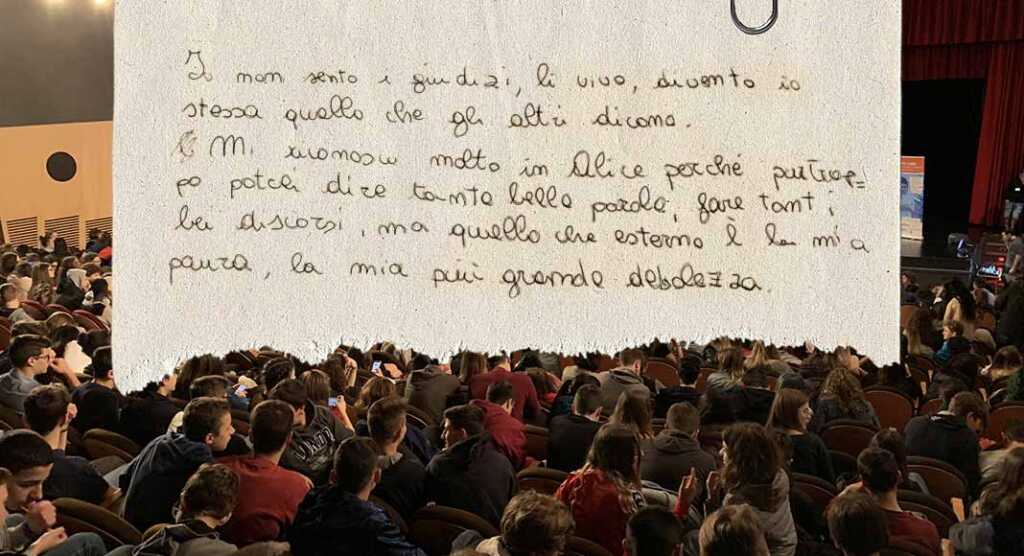 Io non sento i giudizi, li vivo, divento io
stessa quello che gli altri dicono.
Mi riconosco molto in Alice perché purtrop=
po potrei dire tante belle parole, fare tanti
bei discorsi, ma quello che esterno è la mia
paura, la mia più grande debolezza.